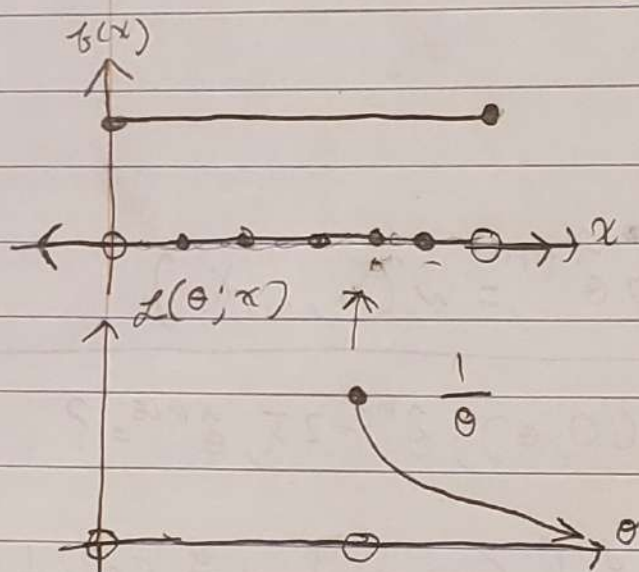 f(x)
x
L(θ; x)
1/θ
θ